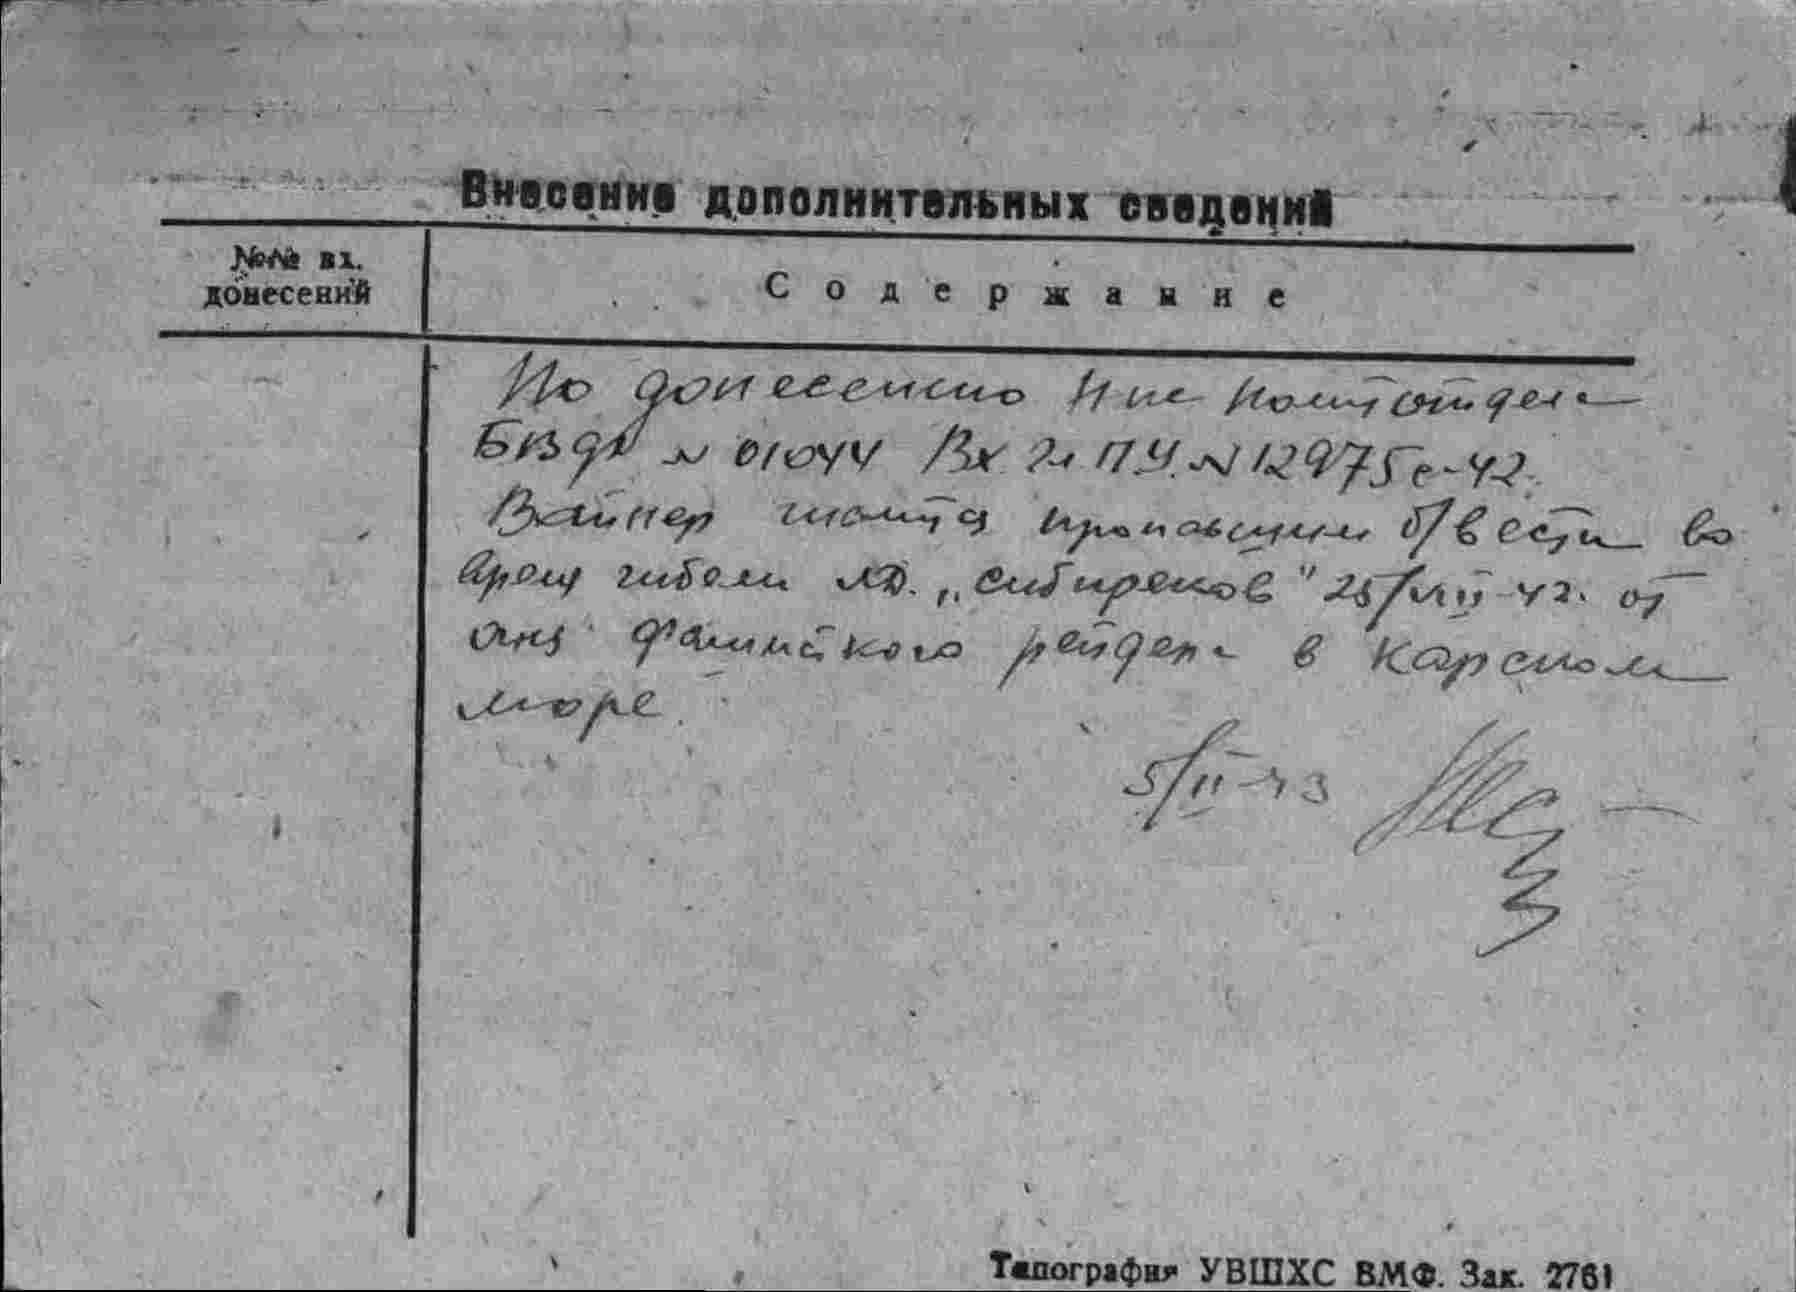 Внесение дополнительных сведений
№№ вх.
донесений
Содержание
По донесению Нне Политотдела
БВФл № 01044 Вх Гл ПУ. № 12975с-42.
Вайнер считается пропавшим б/вести во
время гибели ЛД. „Сибиряков" 25/VIII-42. от
огня фашистского рейдера в Карском
море.
5/II-43
Типография УВШХС ВМФ. Зак. 2761